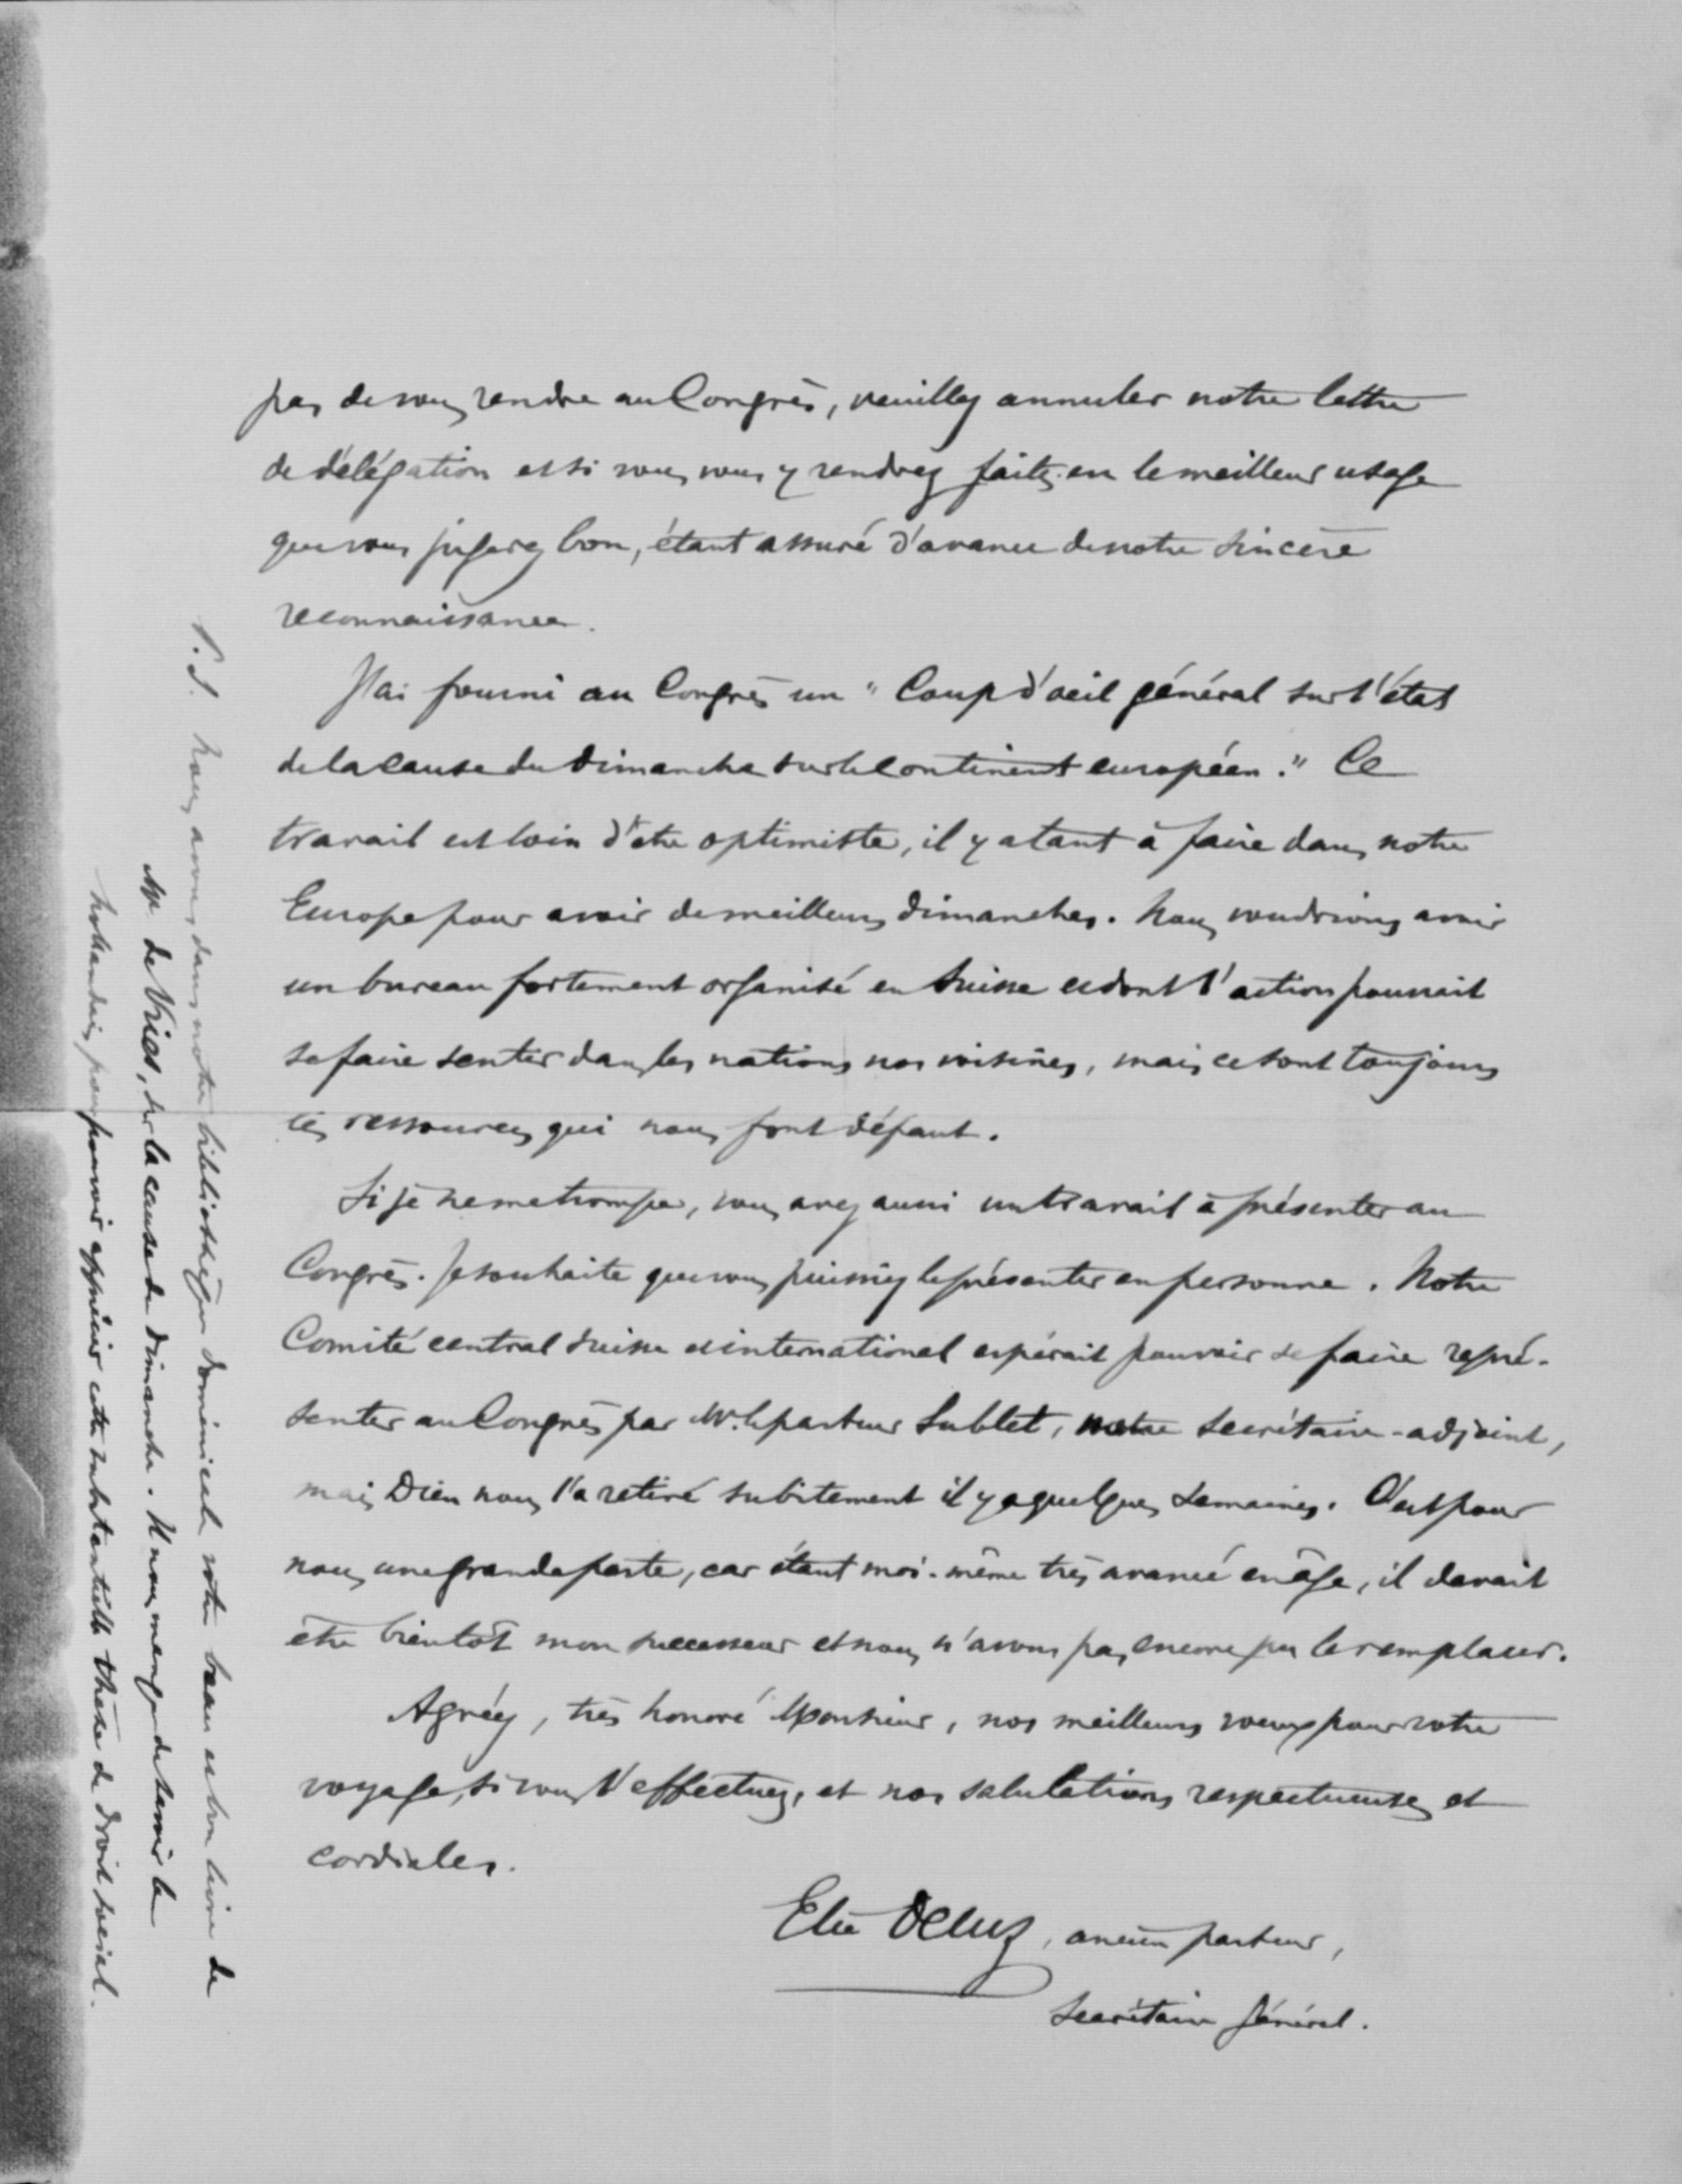 pas de vous rendre au Congrès, veuillez annuler notre lettre
de délégation et si vous vous y rendrez faites-en le meilleur usage
que vous jugerez bon, étant assuré d'avance de notre sincère
reconnaissance.
J'ai fourni au Congrès un "Coup d'oeil général sur l'état
de la cause du Dimanche sur le continent européen." Ce
travail est loin d'être optimiste, il y a tant à faire dans notre
Europe pour avoir de meilleurs dimanches. Nous voudrions avoir
un bureau fortement organisé en Suisse et dont l'action pourrait
se faire sentir dans les nations nos voisines, mais ce sont toujours
les ressources qui nous font défaut.
Si je ne me trompe, vous avez aussi un travail à présenter au
Congrès. Je souhaite que vous puissiez le présenter en personne. Notre
Comité central suisse et international espérait pouvoir se faire repré-
senter au Congrès par Mr. le pasteur Sublet, notre secrétaire-adjoint,
mais Dieu nous l'a retiré subitement il y a quelques semaines. C'est pour
nous une grande perte, car étant moi-même très avancé en âge, il devait
être bientôt mon successeur et nous n'avons pas encore pu le remplacer.
Agréez, très honoré Monsieur, nos meilleurs voeux pour votre
voyage, si vous l'effectuez, et nos salutations respectueuses et
cordiales.
Elie Deluz, ancien pasteur,
Secrétaire général.
P.S. Nous avons dans notre bibliothèque dominicale votre beau et bon livre de
Mr de Vries, sur la cause du Dimanche. Il nous manque de savoir le
hollandais pour pouvoir apprécier cette substantielle thèse de droit social.